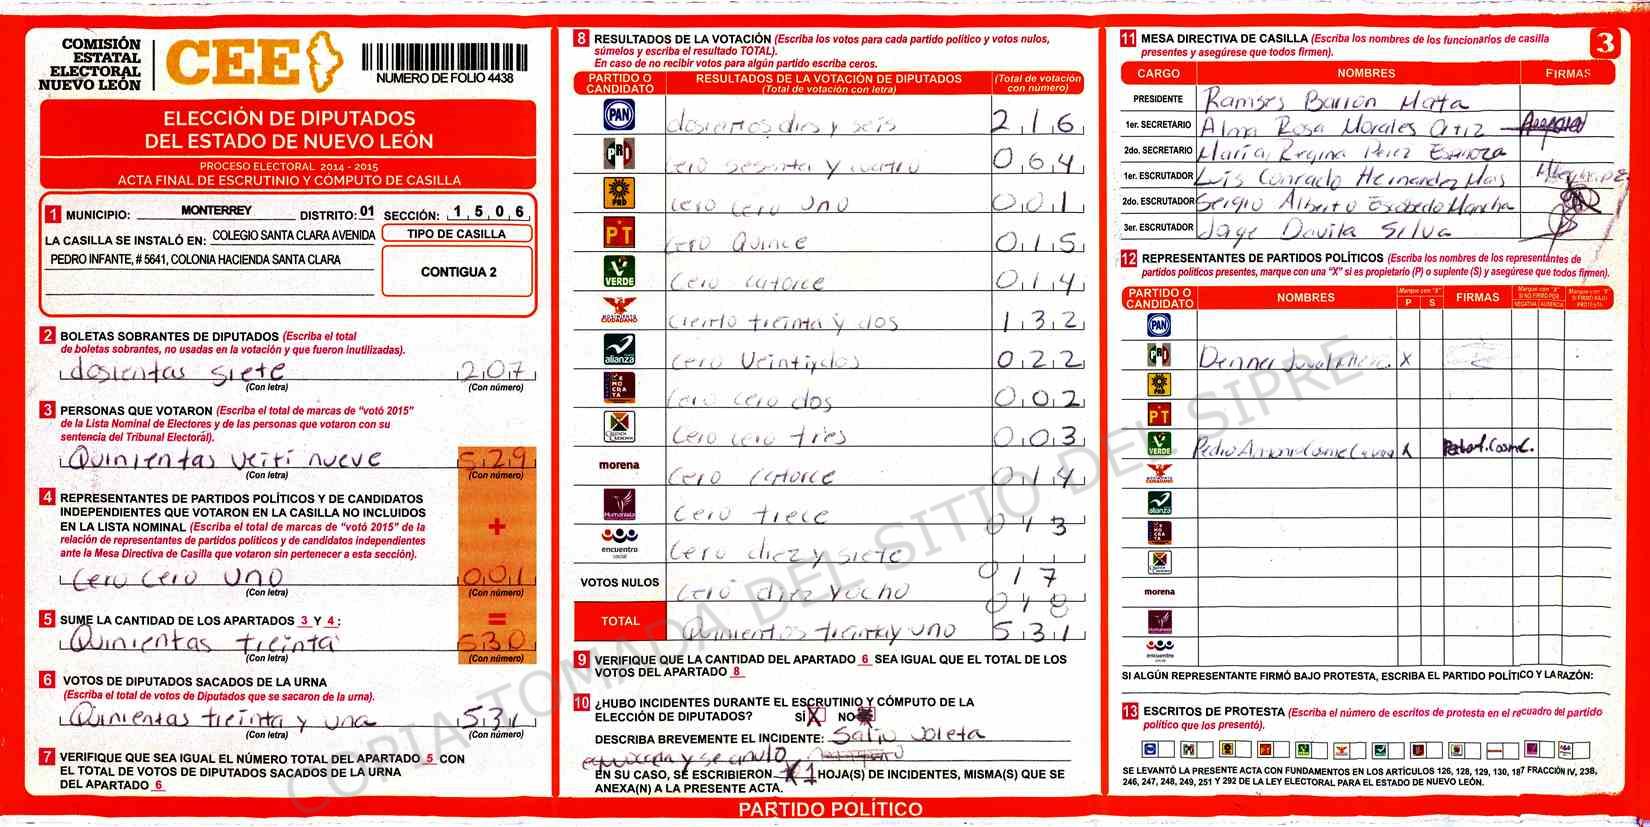 COMISIÓN
ESTATAL
ELECTORAL
NUEVO LEÓN
CEE
NUMERO DE FOLIO 4438
ELECCIÓN DE DIPUTADOS
DEL ESTADO DE NUEVO LEÓN
PROCESO ELECTORAL 2014 - 2015
ACTA FINAL DE ESCRUTINIO Y CÓMPUTO DE CASILLA
1 MUNICIPIO: MONTERREY DISTRITO: 01 SECCIÓN: 1 5 0 6
LA CASILLA SE INSTALÓ EN: COLEGIO SANTA CLARA AVENIDA
PEDRO INFANTE, # 5641, COLONIA HACIENDA SANTA CLARA
TIPO DE CASILLA
CONTIGUA 2
2 BOLETAS SOBRANTES DE DIPUTADOS (Escriba el total
de boletas sobrantes, no usadas en la votación y que fueron inutilizadas).
dosientas siete 2 0 7
(Con letra) (Con número)
3 PERSONAS QUE VOTARON (Escriba el total de marcas de "votó 2015"
de la Lista Nominal de Electores y de las personas que votaron con su
sentencia del Tribunal Electoral).
Quinientas veiti nueve 5 2 9
(Con letra) (Con número)
4 REPRESENTANTES DE PARTIDOS POLÍTICOS Y DE CANDIDATOS
INDEPENDIENTES QUE VOTARON EN LA CASILLA NO INCLUIDOS
EN LA LISTA NOMINAL (Escriba el total de marcas de "votó 2015" de la
relación de representantes de partidos políticos y de candidatos independientes
ante la Mesa Directiva de Casilla que votaron sin pertenecer a esta sección).
+
Cero cero uno 0 0 1
(Con letra) (Con número)
=
5 SUME LA CANTIDAD DE LOS APARTADOS 3 Y 4:
Quinientas treinta 5 3 0
(Con letra) (Con número)
6 VOTOS DE DIPUTADOS SACADOS DE LA URNA
(Escriba el total de votos de Diputados que se sacaron de la urna).
Quinientas treinta y una 5 3 1
(Con letra) (Con número)
7 VERIFIQUE QUE SEA IGUAL EL NÚMERO TOTAL DEL APARTADO 5 CON
EL TOTAL DE VOTOS DE DIPUTADOS SACADOS DE LA URNA
DEL APARTADO 6
8 RESULTADOS DE LA VOTACIÓN (Escriba los votos para cada partido político y votos nulos,
súmelos y escriba el resultado TOTAL).
En caso de no recibir votos para algún partido escriba ceros.
PARTIDO O CANDIDATO RESULTADOS DE LA VOTACIÓN DE DIPUTADOS (Total de votación con letra) (Total de votación con número)
PAN dosientos dies y seis 2 1 6
PRI cero sesenta y cuatro 0 6 4
PRD cero cero uno 0 0 1
PT cero Quince 0 1 5
VERDE cero catorce 0 1 4
MOVIMIENTO CIUDADANO ciento treinta y dos 1 3 2
alianza cero veintiydos 0 2 2
DEMOCRATA cero cero dos 0 0 2
CRUZADA CIUDADANA cero cero tres 0 0 3
morena cero catorce 0 1 4
Humanista cero trece 0 1 3
encuentro social cero diez y siete 0 1 7
VOTOS NULOS cero diez y ocho 0 1 8
TOTAL Quinientos treinta y uno 5 3 1
9 VERIFIQUE QUE LA CANTIDAD DEL APARTADO 6 SEA IGUAL QUE EL TOTAL DE LOS
VOTOS DEL APARTADO 8
10 ¿HUBO INCIDENTES DURANTE EL ESCRUTINIO Y CÓMPUTO DE LA
ELECCIÓN DE DIPUTADOS? SÍ X NO
DESCRIBA BREVEMENTE EL INCIDENTE: Salio boleta
equivocada y se anulo
EN SU CASO, SE ESCRIBIERON 1 HOJA(S) DE INCIDENTES, MISMA(S) QUE SE
ANEXA(N) A LA PRESENTE ACTA.
PARTIDO POLÍTICO
11 MESA DIRECTIVA DE CASILLA (Escriba los nombres de los funcionarios de casilla
presentes y asegúrese que todos firmen).
3
CARGO NOMBRES FIRMAS
PRESIDENTE Ramses Barron Mata
1er. SECRETARIO Alma Rosa Morales Ortiz
2do. SECRETARIO María Regina Perez Espinoza
1er. ESCRUTADOR Luis Conrado Hernandez
2do. ESCRUTADOR Sergio Alberto Escobedo
3er. ESCRUTADOR Jorge Davila Silva
12 REPRESENTANTES DE PARTIDOS POLÍTICOS (Escriba los nombres de los representantes de
partidos políticos presentes, marque con una "X" si es propietario (P) o suplente (S) y asegúrese que todos firmen).
PARTIDO O CANDIDATO NOMBRES Marque con "X" P S FIRMAS Marque con "X" SI NO FIRMÓ POR NEGATIVA AUSENCIA Marque con "X" SI FIRMÓ BAJO PROTESTA
PAN
PRI X
PRD
PT
VERDE Pedro X Pedro A. Cosme C.
MOVIMIENTO CIUDADANO
alianza
DEMOCRATA
CRUZADA CIUDADANA
morena
Humanista
encuentro social
SI ALGÚN REPRESENTANTE FIRMÓ BAJO PROTESTA, ESCRIBA EL PARTIDO POLÍTICO Y LA RAZÓN:
13 ESCRITOS DE PROTESTA (Escriba el número de escritos de protesta en el recuadro del partido
político que los presentó).
SE LEVANTÓ LA PRESENTE ACTA CON FUNDAMENTOS EN LOS ARTÍCULOS 126, 128, 129, 130, 187 FRACCIÓN IV, 238,
246, 247, 248, 249, 251 Y 292 DE LA LEY ELECTORAL PARA EL ESTADO DE NUEVO LEÓN.
COPIA TOMADA DEL SITIO DEL SIPRE